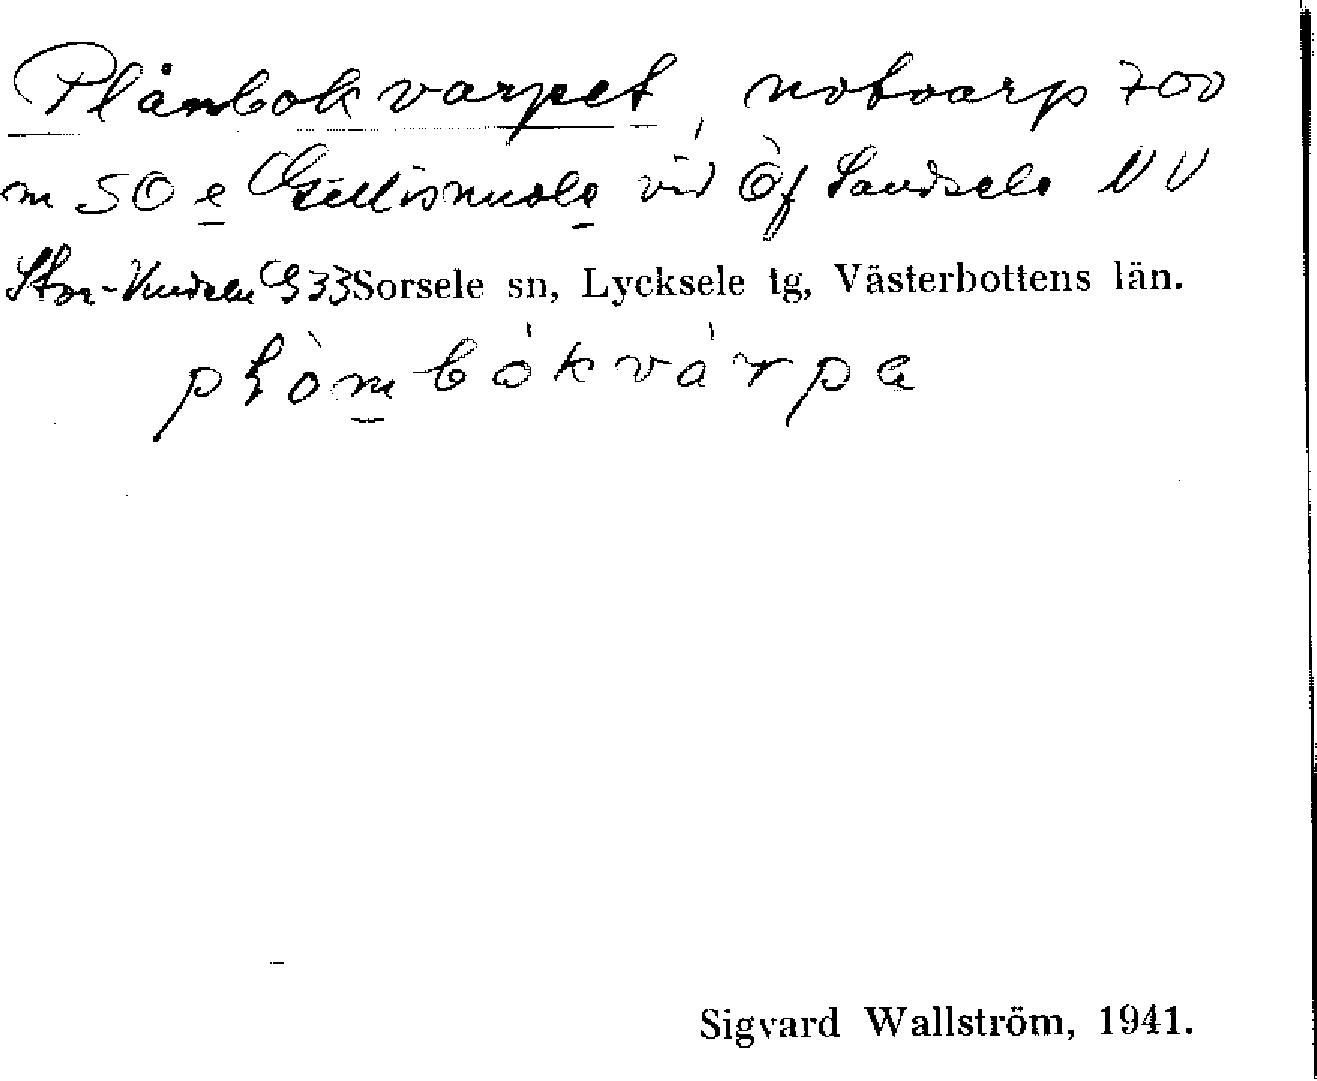 Plånbokvarpet, notvarp 700
m SO e Gällisnuole vid Öf Sandsele NV
Stor-Vindeln G33 Sorsele sn, Lycksele tg, Västerbottens län.
plòmbókvárpa
Sigvard Wallström, 1941.